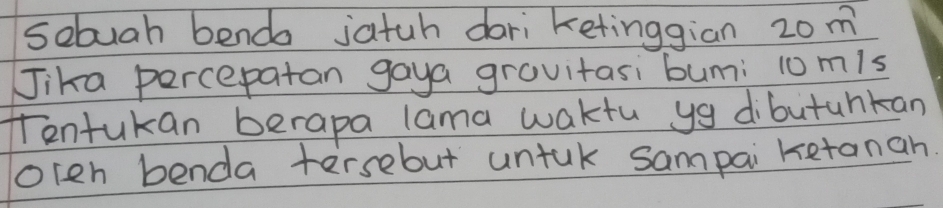 Sebuah benda jatuh dari ketinggian 20 m
Jika percepatan gaya gravitasi bumi 10 m/s
Tentukan berapa lama waktu yg dibutuhkan
oleh benda tersebut untuk sampai ketanah.